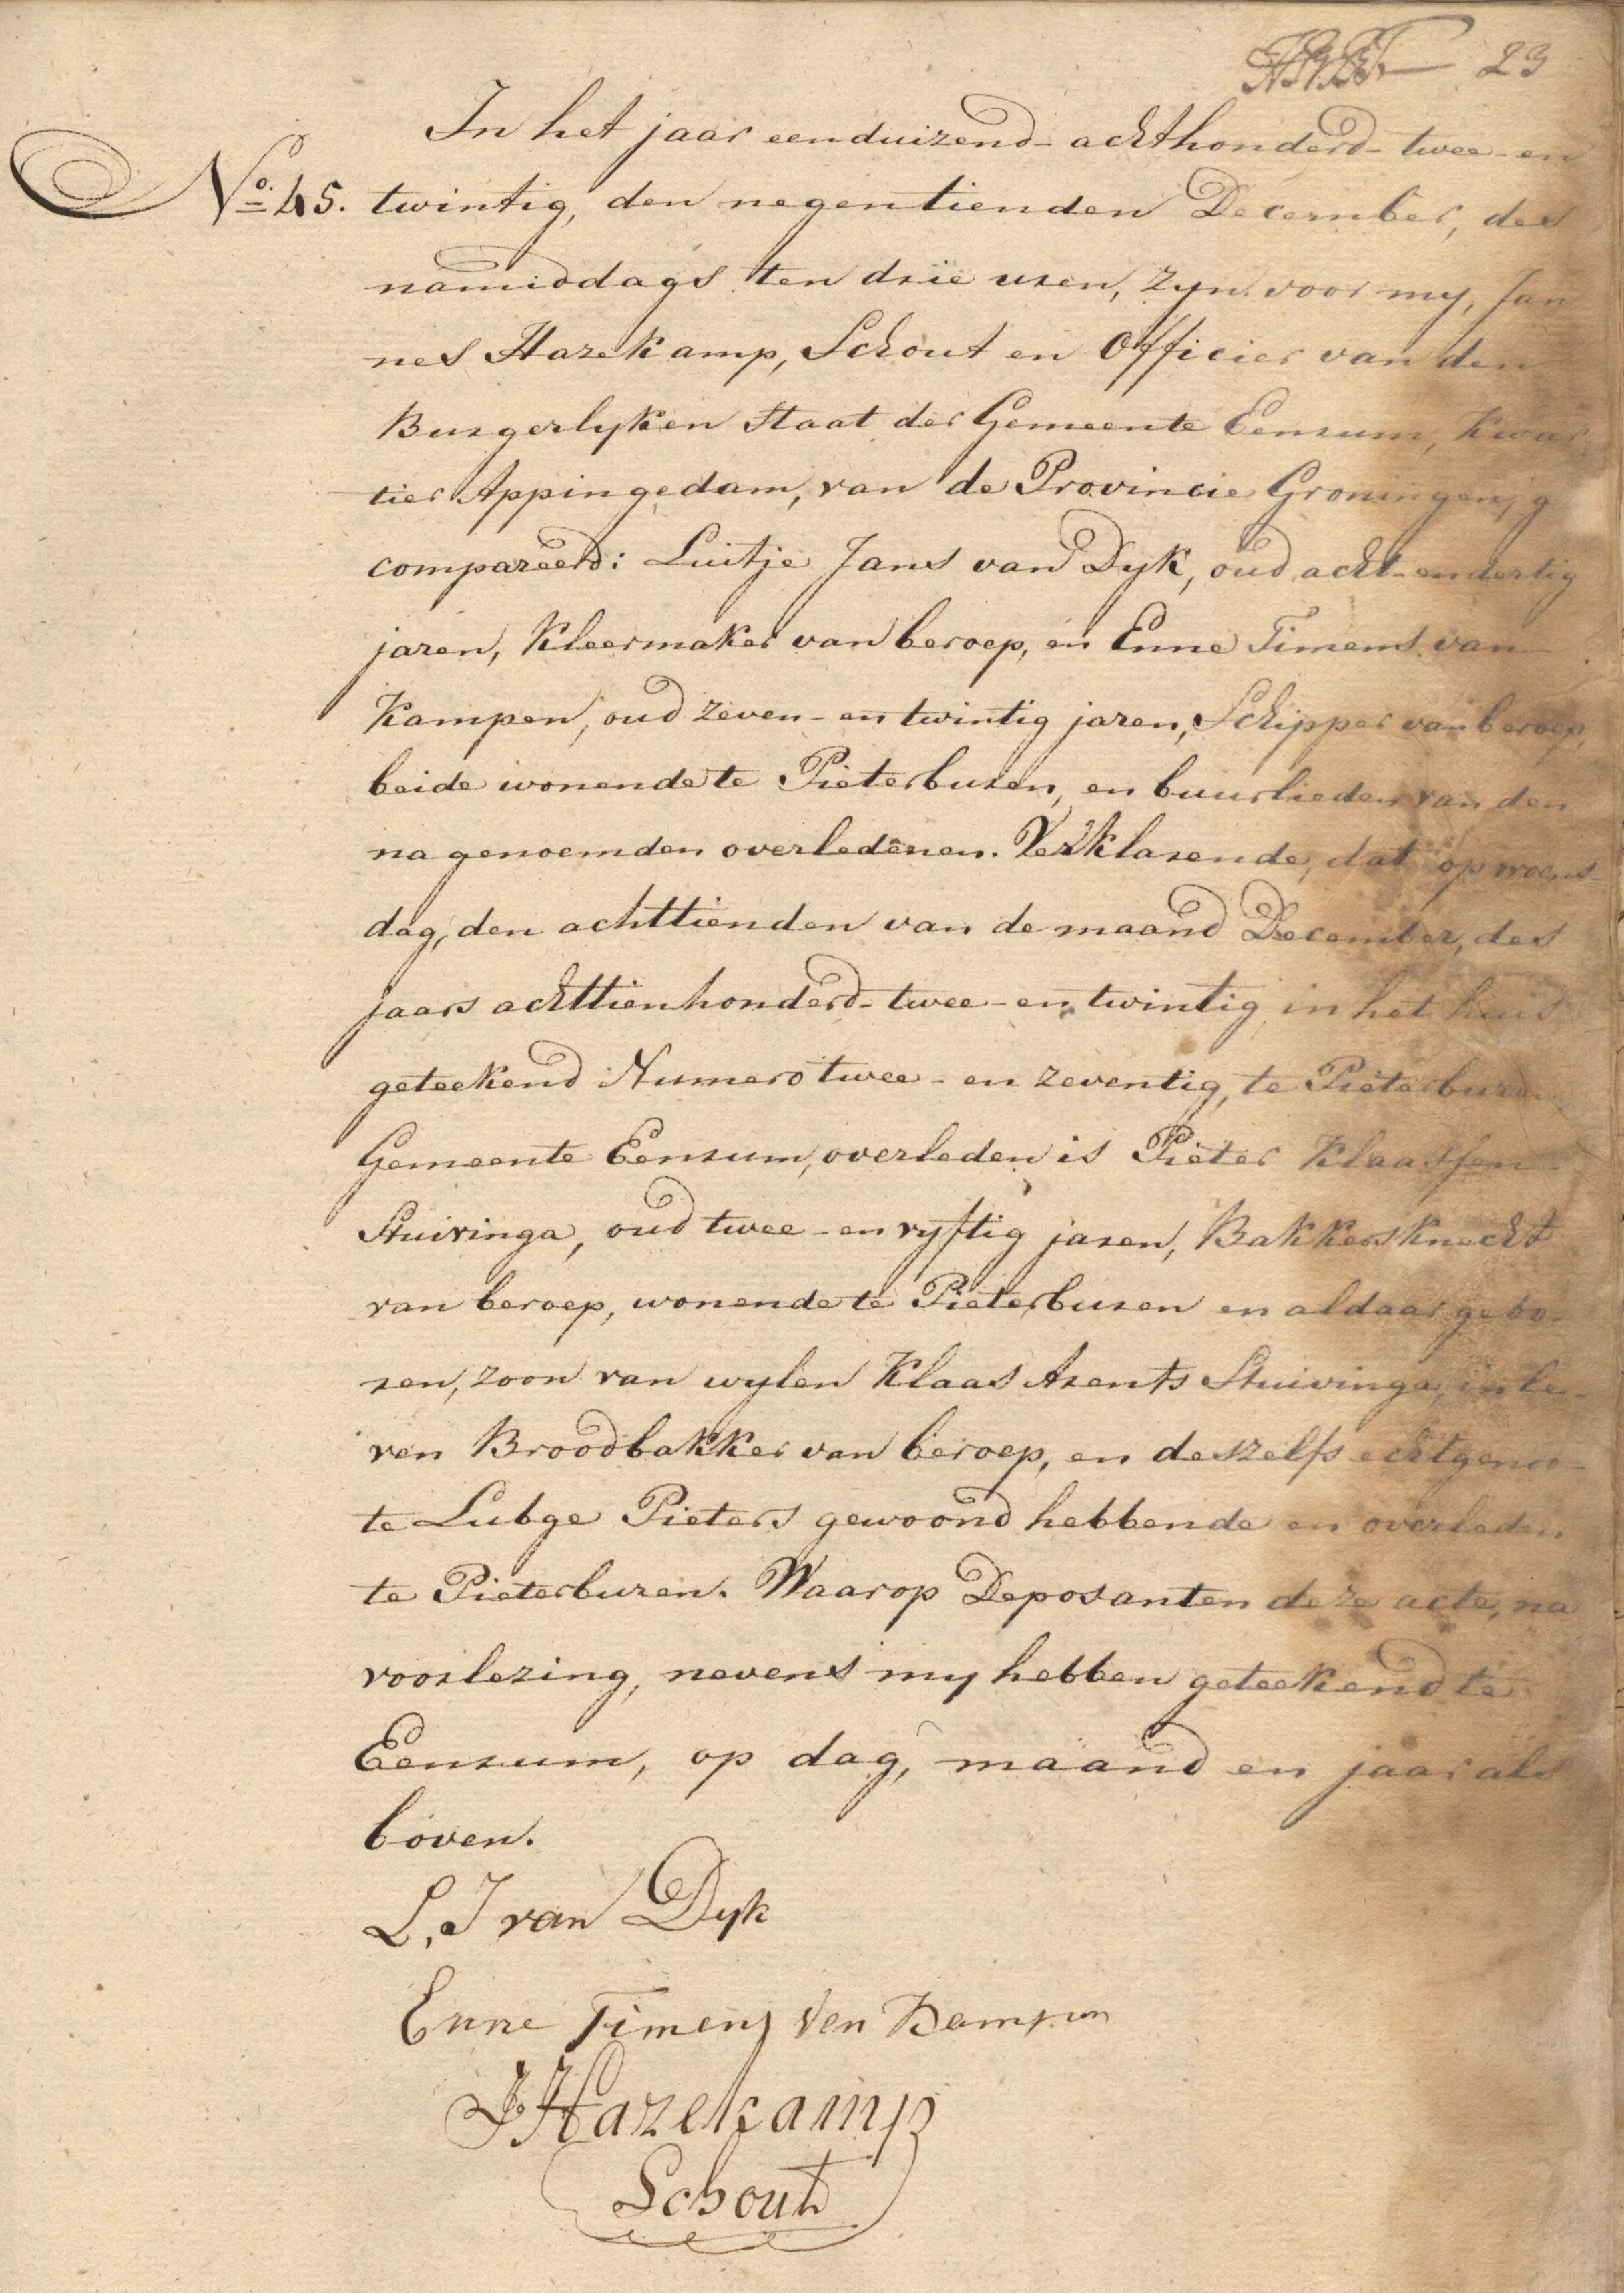 23
In het jaar eenduizend-achthonderd-twee-en
No. 45. twintig, den negentienden December, des
namiddags ten drie uren, zyn voor my, Jan
nes Hazekamp, Schout en Officier van den
Burgerlyken Staat der Gemeente Eenrum, Kwar
tier Appingedam, van de Provincie Groningen, g
compareerd: Luitje Jans van Dyk, oud acht-en dertig
jaren, Kleermaker van beroep, en Enne Timens van
Kampen, oud zeven-en twintig jaren, Schipper van beroep,
beide wonende te Pieterburen, en buurlieden van den
na genoemden overledenen. Verklarende, dat op woens-
dag, den achttienden van de maand December, des
jaars achttienhonderd-twee-en twintig in het huis
geteekend Numero twee-en zeventig, te Pieterburen
Gemeente Eenrum, overleden is Pieter Klaassen
Stuivinga, oud twee-en vyftig jaren, Bakkersknecht
van beroep, wonende te Pieterburen en aldaar gebo-
ren, zoon van wylen Klaas Arents Stuivinga, in le-
ven Broodbakker van beroep, en deszelfs echtgenoo-
te Lubge Pieters gewoond hebbende en overleden
te Pieterburen. Waarop Deposanten deze acte, na
voorlezing, nevens my hebben geteekend te
Eenrum, op dag, maand en jaar als
boven.
L. J van Dyk
Enne Timens Van Kampen
J Hazekamp
Schout